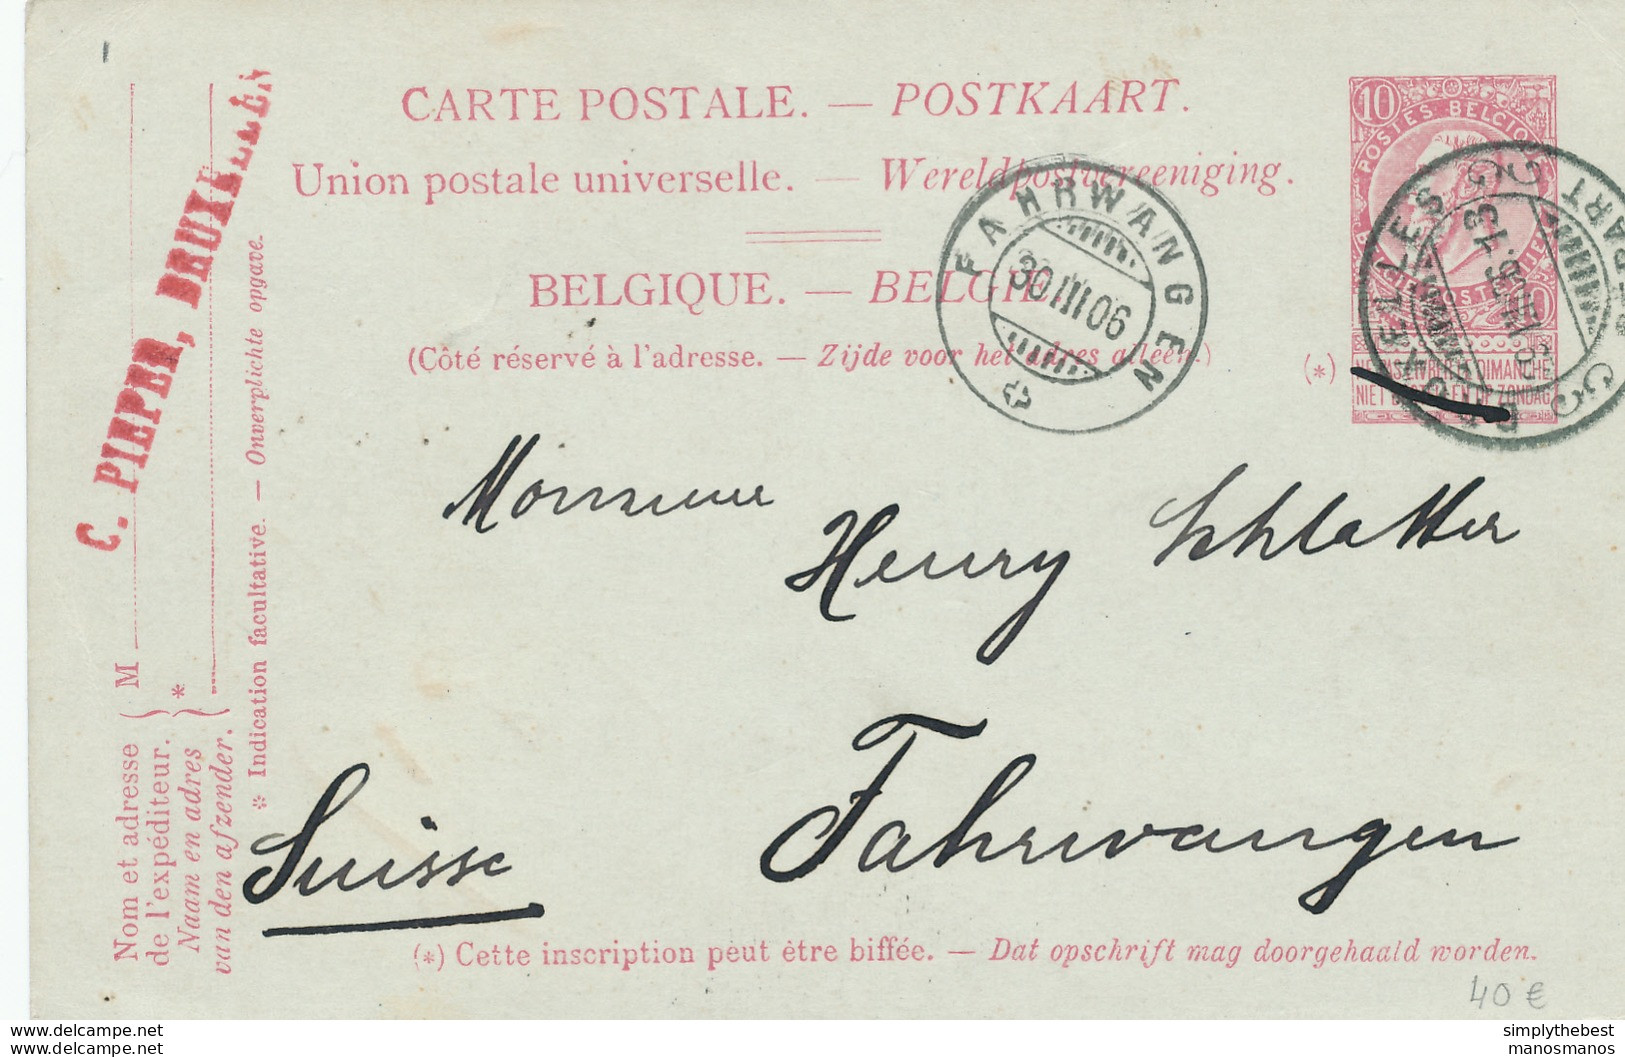 CARTE POSTALE. — POSTKAART.
Union postale universelle. — Wereldpostvereeniging.
BELGIQUE. — BELGIE.
(Côté réservé à l'adresse. — Zijde voor het adres alleen.)
(*)
10
POSTES BELGIQUE
NE PAS LIVRER LE DIMANCHE
NIET BESTELLEN OP ZONDAG
FAHRWANGEN
30 III 06
BRUXELLES
DÉPART
C. PIEPER, BRUXELLES
M
*
Nom et adresse
de l'expéditeur.
Naam en adres
van den afzender.
* Indication facultative. — Onverplichte opgave.
Monsieur
Henry Schlatter
Fahrwangen
Suisse
(*) Cette inscription peut être biffée. — Dat opschrift mag doorgehaald worden.
40 €
www.delcampe.net
www.delcampe.net
simplythebest
manosmanos